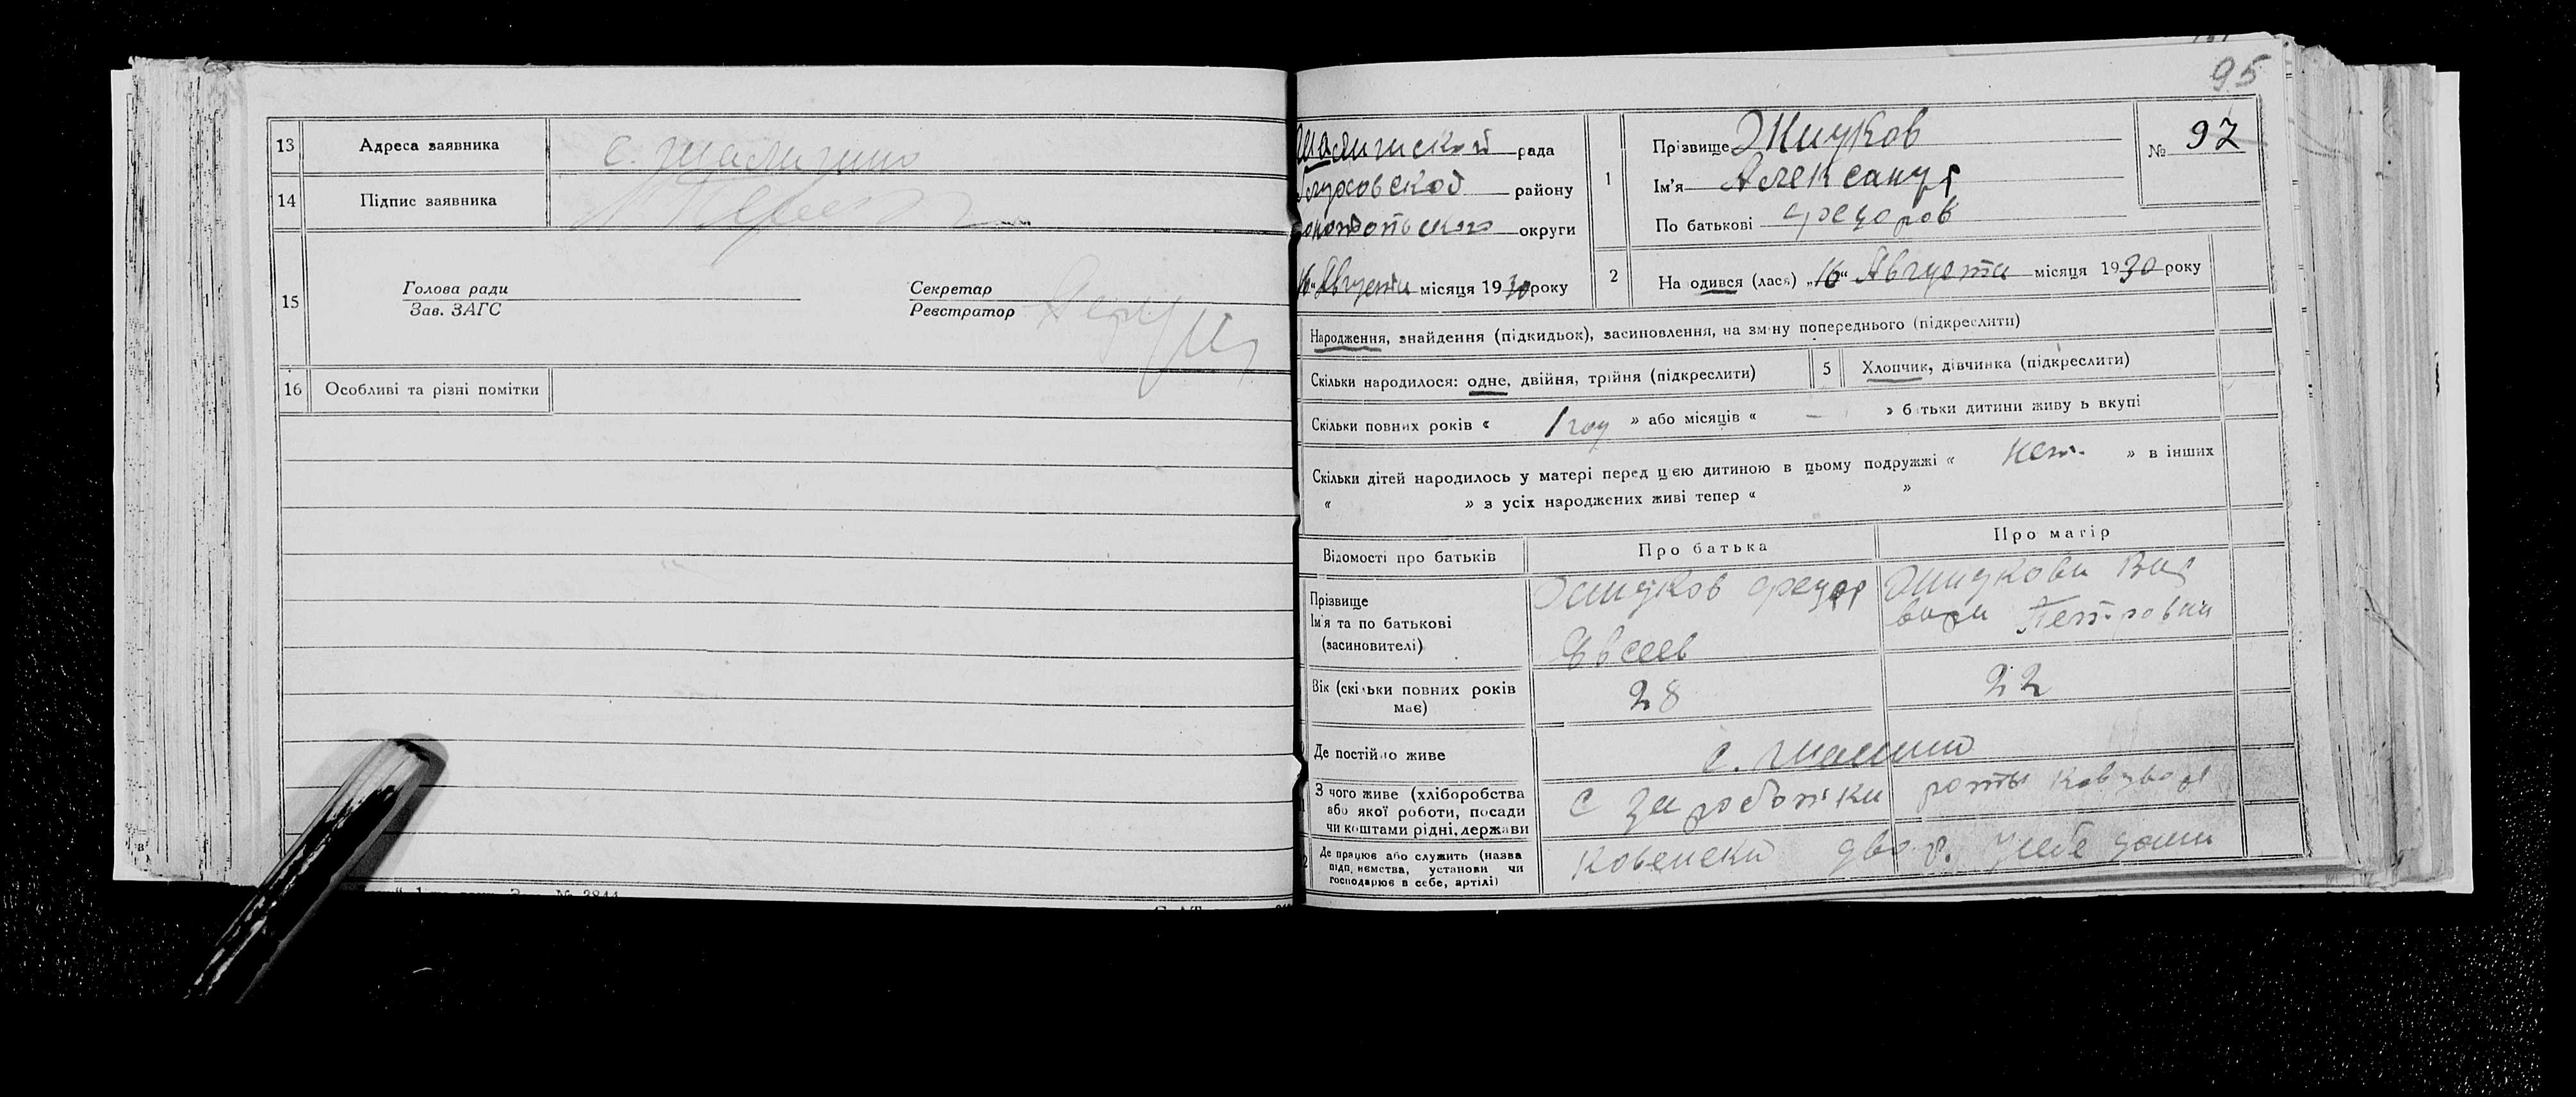 13 Адреса заявника с. Шалигино
14 Підпис заявника
15 Голова ради
Зав. ЗАГС
Секретар
Реєстратор
16 Особливі та різні помітки
95
Шалигиской рада
Глуховской району
округи
16 „ Августа місяця 1930 року
1 Прізвище Жидков
Ім'я Александр
По батькові Федоров
№ 97
2 На одився (лася) „16“ Августа місяця 1930 року
Народження, знайдення (підкидьок), засиновлення, на зміну попереднього (підкреслити)
Скільки народилося: одне, двійня, трійня (підкреслити)
5 Хлопчик, дівчинка (підкреслити)
Скільки повних років « 1 год » або місяців « — » батьки дитини живуть вкупі
Скільки дітей народилось у матері перед цією дитиною в цьому подружжі « нет. » в інших
« » з усіх народжених живі тепер « »
Відомості про батьків
Про батька
Про матір
Прізвище
Ім'я та по батькові
(засиновителі)
Жидков Федор
Евсеев
Жидкова
Петровна
Вік (скільки повних років
має)
28
22
Де постійно живе
с.
З чого живе (хліборобства
або якої роботи, посади
чи коштами рідні, держави
с заработки
Де працює або служить (назва
підприємства, установи чи
господарює в себе, артілі)